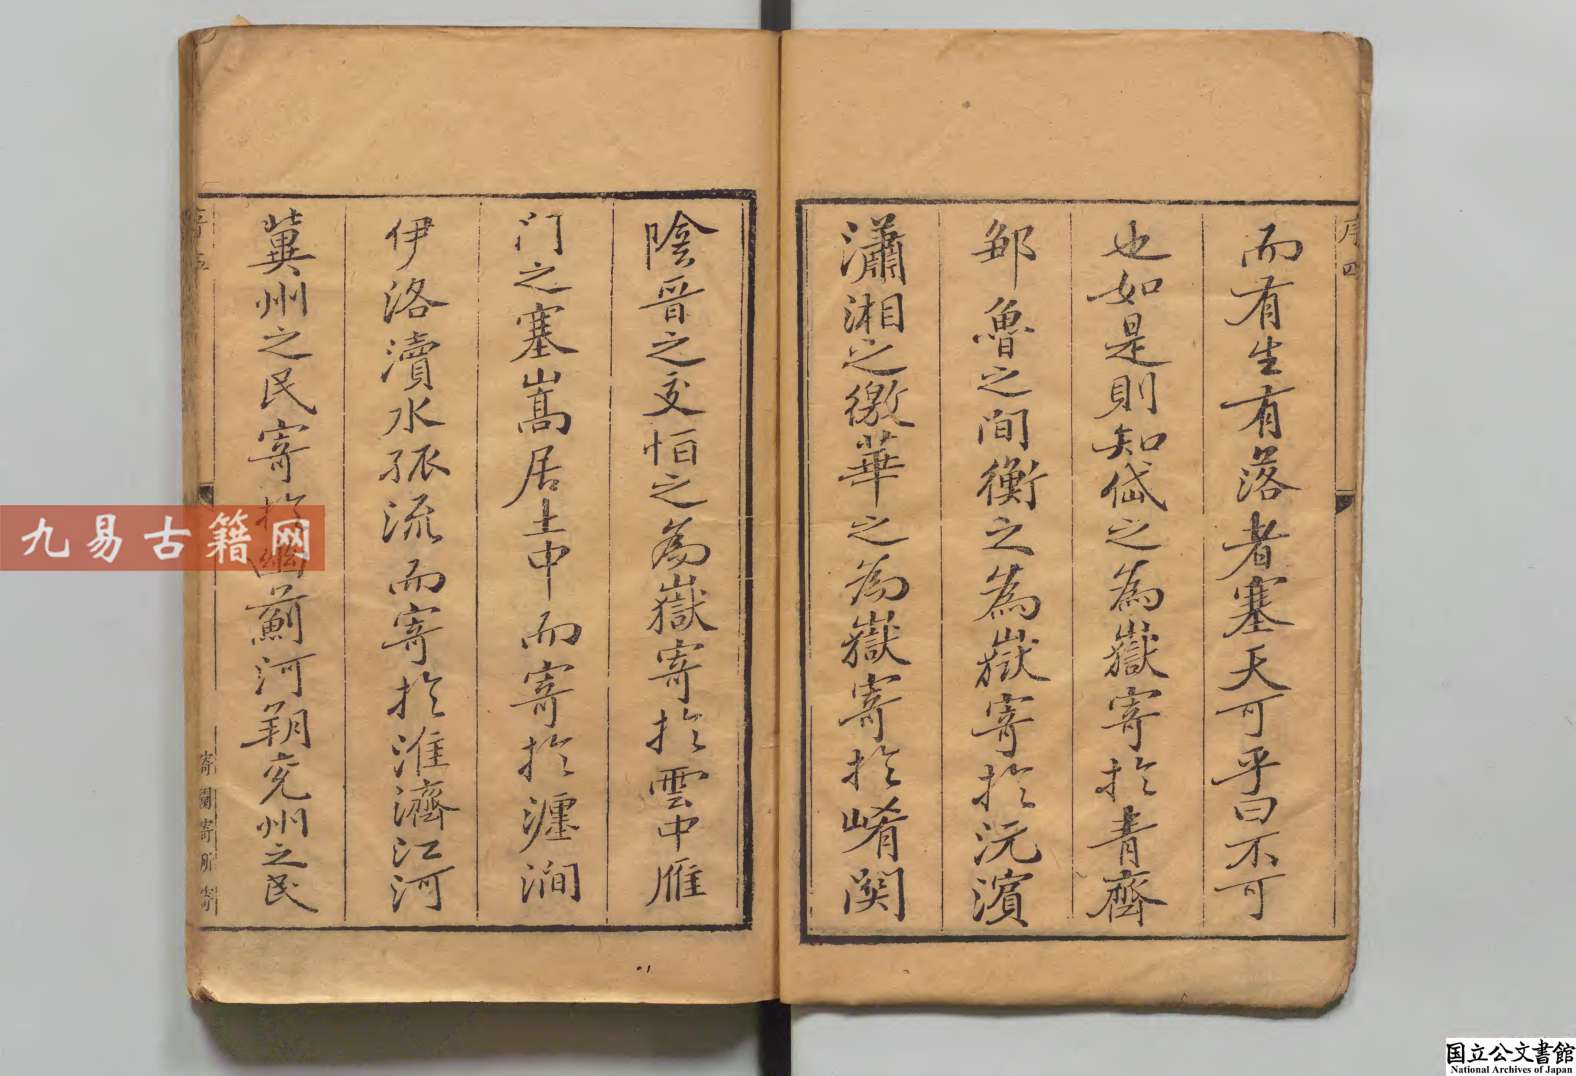 序四
而有生有落者塞天可乎曰不可
也如是則知岱之為嶽寄於青齊
鄒魯之間衡之為嶽寄於沅濱
瀟湘之徼華之為嶽寄於崤關
陰晉之交恒之為嶽寄於雲中雁
門之塞嵩居土中而寄於瀍澗
伊洛瀆水孤流而寄於淮濟江河
冀州之民寄於幽薊河朔兗州之民
序五
寄園寄所寄
九易古籍网
国立公文書館
National Archives of Japan